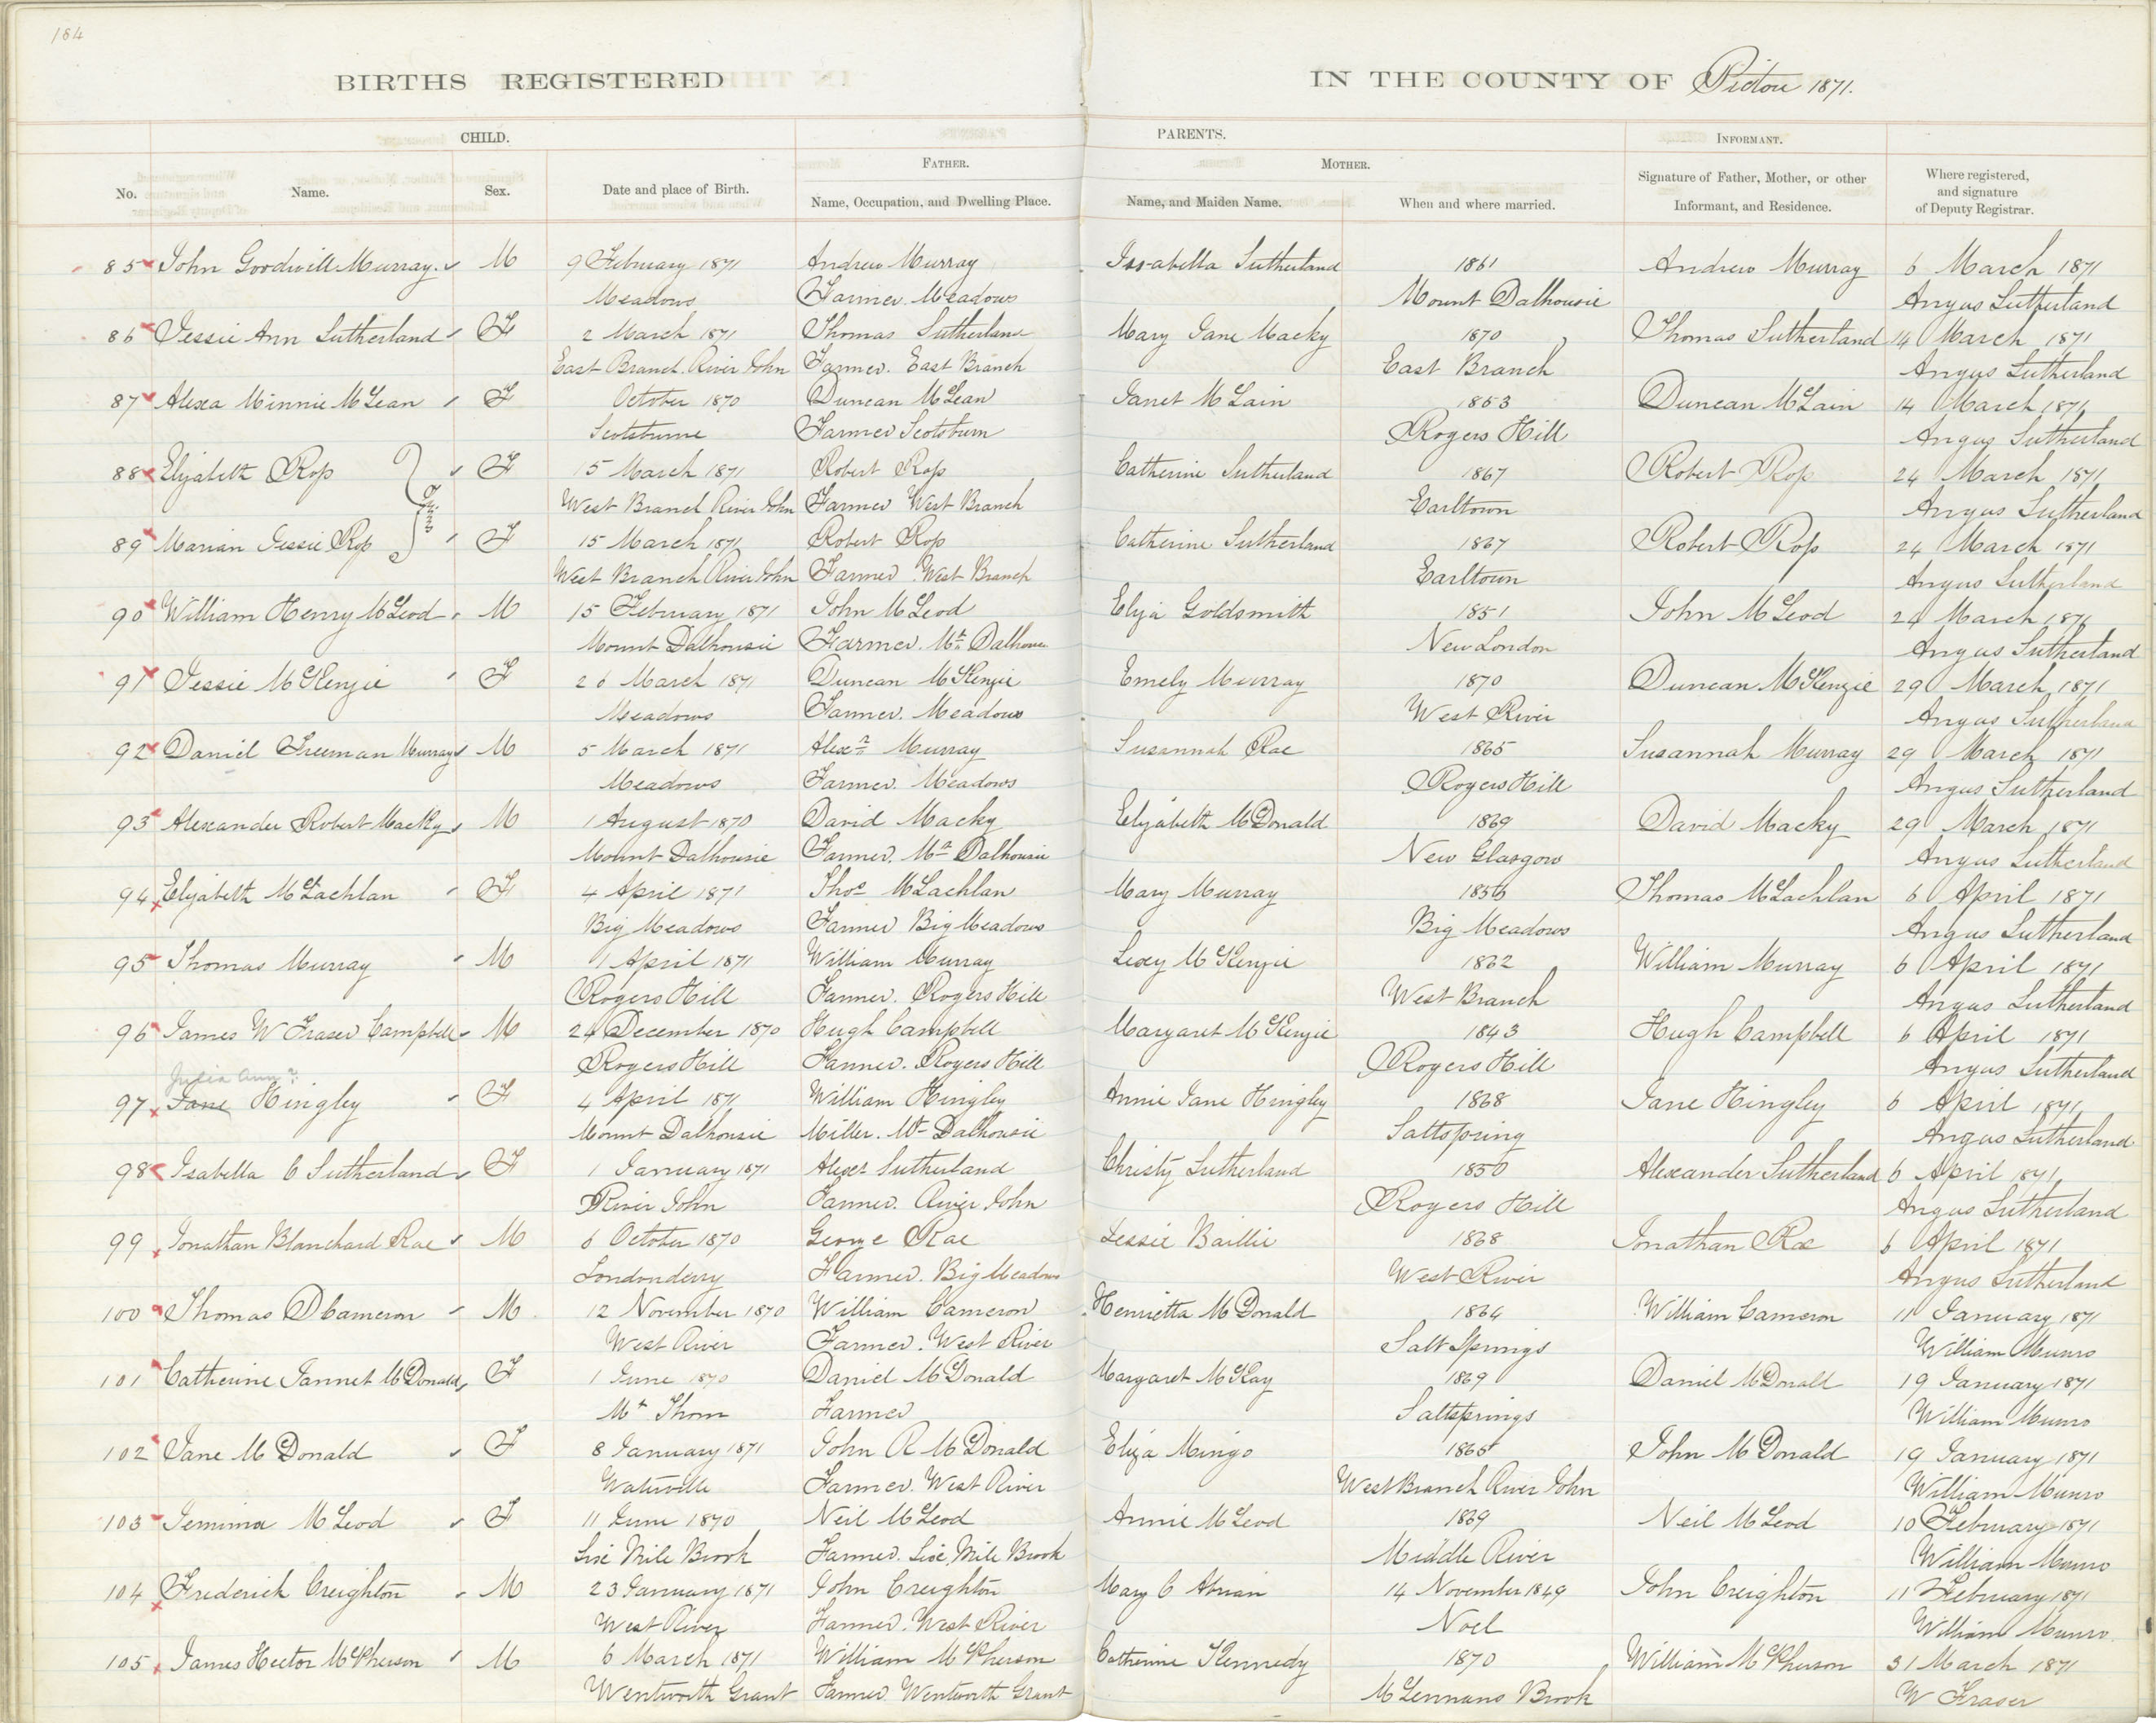 184
BIRTHS REGISTERED IN THE COUNTY OF Pictou 1871.
CHILD. PARENTS. INFORMANT.
FATHER. MOTHER.
No. Name. Sex. Date and place of Birth. Name, Occupation, and Dwelling Place. Name, and Maiden Name. When and where married. Signature of Father, Mother, or other Informant, and Residence. Where registered, and signature of Deputy Registrar.
85 John Goodwill Murray M 9 February 1871 Andrew Murray Issabella Sutherland 1861 Andrew Murray 6 March 1871
Meadows Farmer. Meadows Mount Dalhousie Angus Sutherland
86 Jessie Ann Sutherland F 2 March 1871 Thomas Sutherland Mary Jane Macky 1870 Thomas Sutherland 14 March 1871
East Branch River John Farmer. East Branch East Branch Angus Sutherland
87 Alexa Minnie McLean F October 1870 Duncan McLean Janet McLain 1863 Duncan McLain 14 March 1871
Scotsburne Farmer Scotsburn Rogers Hill Angus Sutherland
88 Elizabeth Ross F 15 March 1871 Robert Ross Catherine Sutherland 1867 Robert Ross 24 March 1871
Twins
West Branch River John Farmer West Branch Earltown Angus Sutherland
89 Marian Jessie Ross F 15 March 1871 Robert Ross Catherine Sutherland 1867 Robert Ross 24 March 1871
West Branch River John Farmer West Branch Earltown Angus Sutherland
90 William Henry McLeod M 15 February 1871 John McLeod Eliza Goldsmith 1851 John McLeod 24 March 1871
Mount Dalhousie Farmer. Mt Dalhousie New London Angus Sutherland
91 Jessie McKenzie F 26 March 1871 Duncan McKenzie Emely Murray 1870 Duncan McKenzie 29 March 1871
Meadows Farmer. Meadows West River Angus Sutherland
92 Daniel Freeman Murray M 5 March 1871 Alexr Murray Susannah Rae 1865 Susannah Murray 29 March 1871
Meadows Farmer. Meadows Rogers Hill Angus Sutherland
93 Alexander Robert Macky M 1 August 1870 David Macky Elizabeth McDonald 1869 David Macky 29 March 1871
Mount Dalhousie Farmer. Mt Dalhousie New Glasgow Angus Sutherland
94 Elizabeth McLachlan F 4 April 1871 Thos McLachlan Mary Murray Thomas McLachlan 6 April 1871
Big Meadows Farmer Big Meadows Big Meadows Angus Sutherland
95 Thomas Murray M 1 April 1871 William Murray Lexy McKenzie 1862 William Murray 6 April 1871
Rogers Hill Farmer. Rogers Hill West Branch Angus Sutherland
96 James W Fraser Campbell M 24 December 1870 Hugh Campbell Margaret McKenzie 1843 Hugh Campbell 6 April 1871
Rogers Hill Farmer. Rogers Hill Rogers Hill Angus Sutherland
Julia Ann?
97 Jane Hingley F 4 April 1871 William Hingley Annie Jane Hingley 1868 Jane Hingley 6 April 1871
Mount Dalhousie Miller. Mt Dalhousie Saltspring Angus Sutherland
98 Isabella C Sutherland F 1 January 1871 Alexr Sutherland Christy Sutherland 1850 Alexander Sutherland 6 April 1871
River John Farmer. River John Rogers Hill Angus Sutherland
99 Jonathan Blanchard Rae M 6 October 1870 George Rae Jessie Baillie 1868 Jonathan Rae 6 April 1871
Londonderry Farmer. Big Meadows West River Angus Sutherland
100 Thomas D Cameron M 12 November 1870 William Cameron Henrietta McDonald 1864 William Cameron 11 January 1871
West River Farmer. West River Salt Springs William Munro
101 Catherine Jannet McDonald F 1 June 1870 Daniel McDonald Margaret McKay 1869 Daniel McDonald 19 January 1871
Mt Thom Farmer Saltsprings William Munro
102 Jane McDonald F 8 January 1871 John R McDonald Eliza Mingo 1865 John McDonald 19 January 1871
Waterville Farmer. West River West Branch River John William Munro
103 Jemima McLeod F 11 June 1870 Neil McLeod Annie McLeod 1869 Neil McLeod 10 February 1871
Six Mile Brook Farmer. Six Mile Brook Middle River William Munro
104 Frederick Creighton M 23 January 1871 John Creighton Mary C 14 November 1849 John Creighton 11 February 1871
West River Farmer. West River Noel William Munro
105 James Hector McPherson M 6 March 1871 William McPherson Catherine Kennedy 1870 William McPherson 31 March 1871
Wentworth Grant Farmer Wentworth Grant McLennans Brook W Fraser